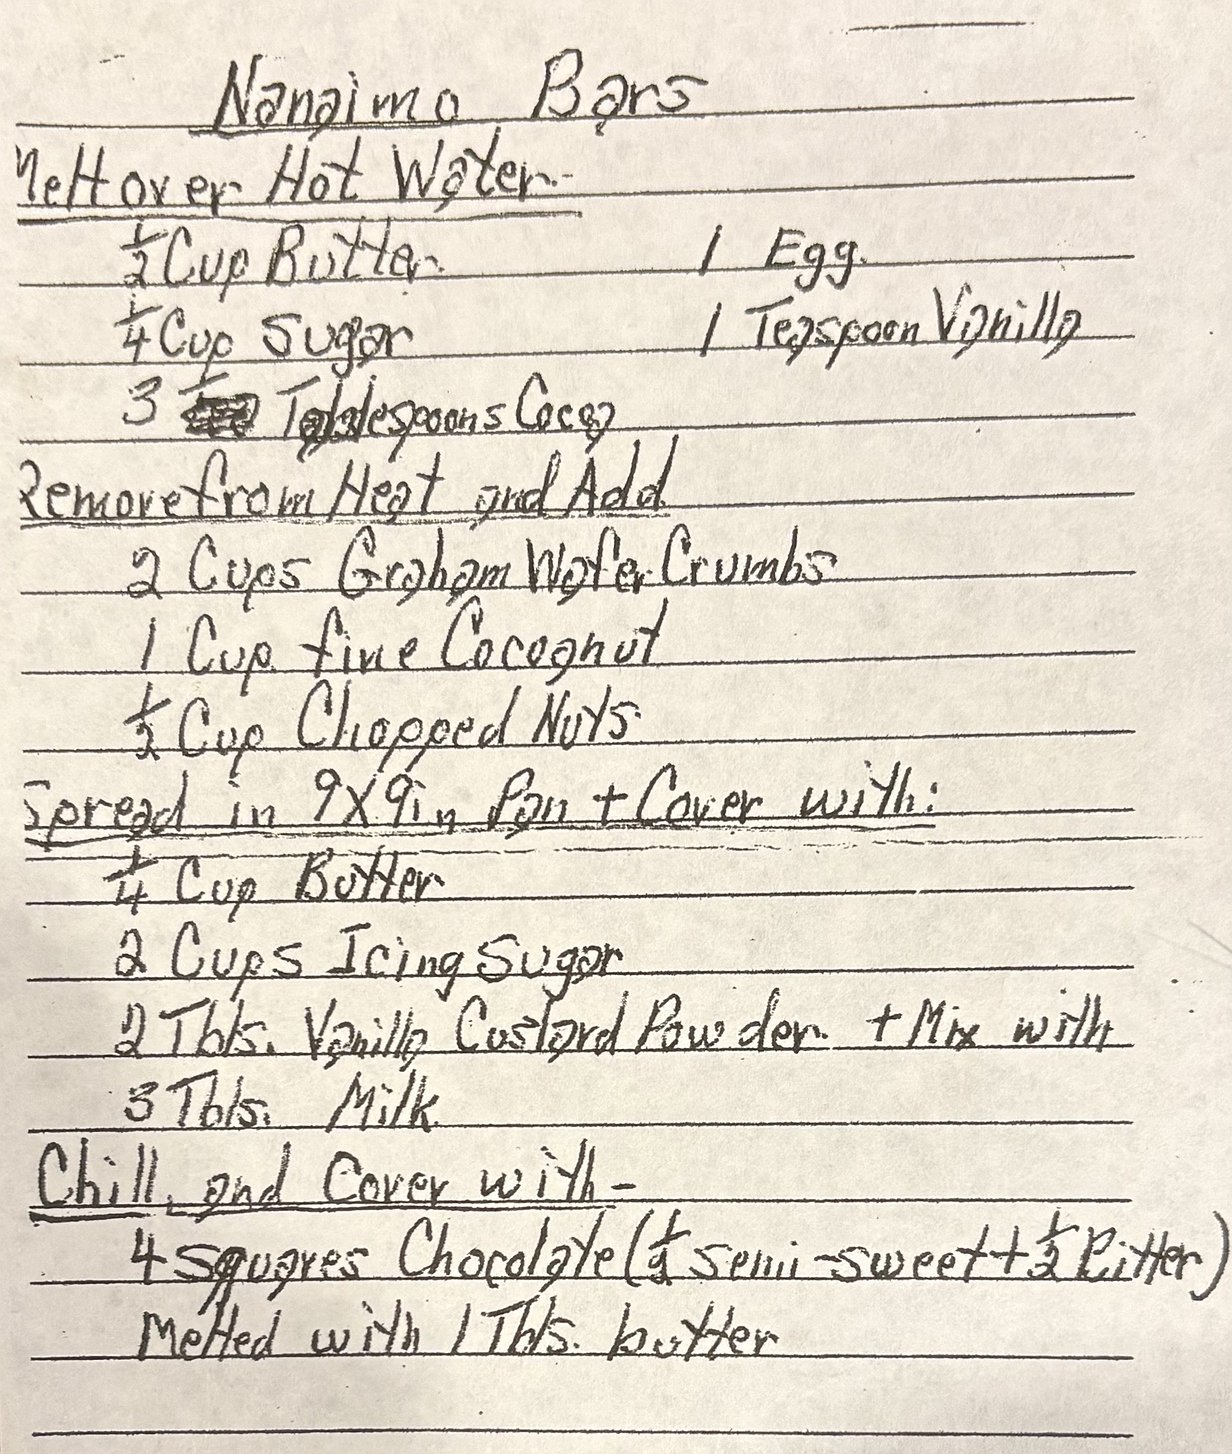 Nanaimo Bars
Melt over Hot Water
½ Cup Butter 1 Egg
¼ Cup Sugar 1 Teaspoon Vanilla
3 Tablespoons Cocoa
Remove from Heat and Add
2 Cups Graham Wafer Crumbs
1 Cup fine Cocoanut
½ Cup Chopped Nuts
Spread in 9X9in Pan + Cover with:
¼ Cup Butter
2 Cups Icing Sugar
2 Tbls. Vanilla Custard Powder + Mix with
3 Tbls. Milk
Chill, and Cover with -
4 squares Chocolate (½ semi-sweet + ½ Bitter)
Melted with 1 Tbls. butter